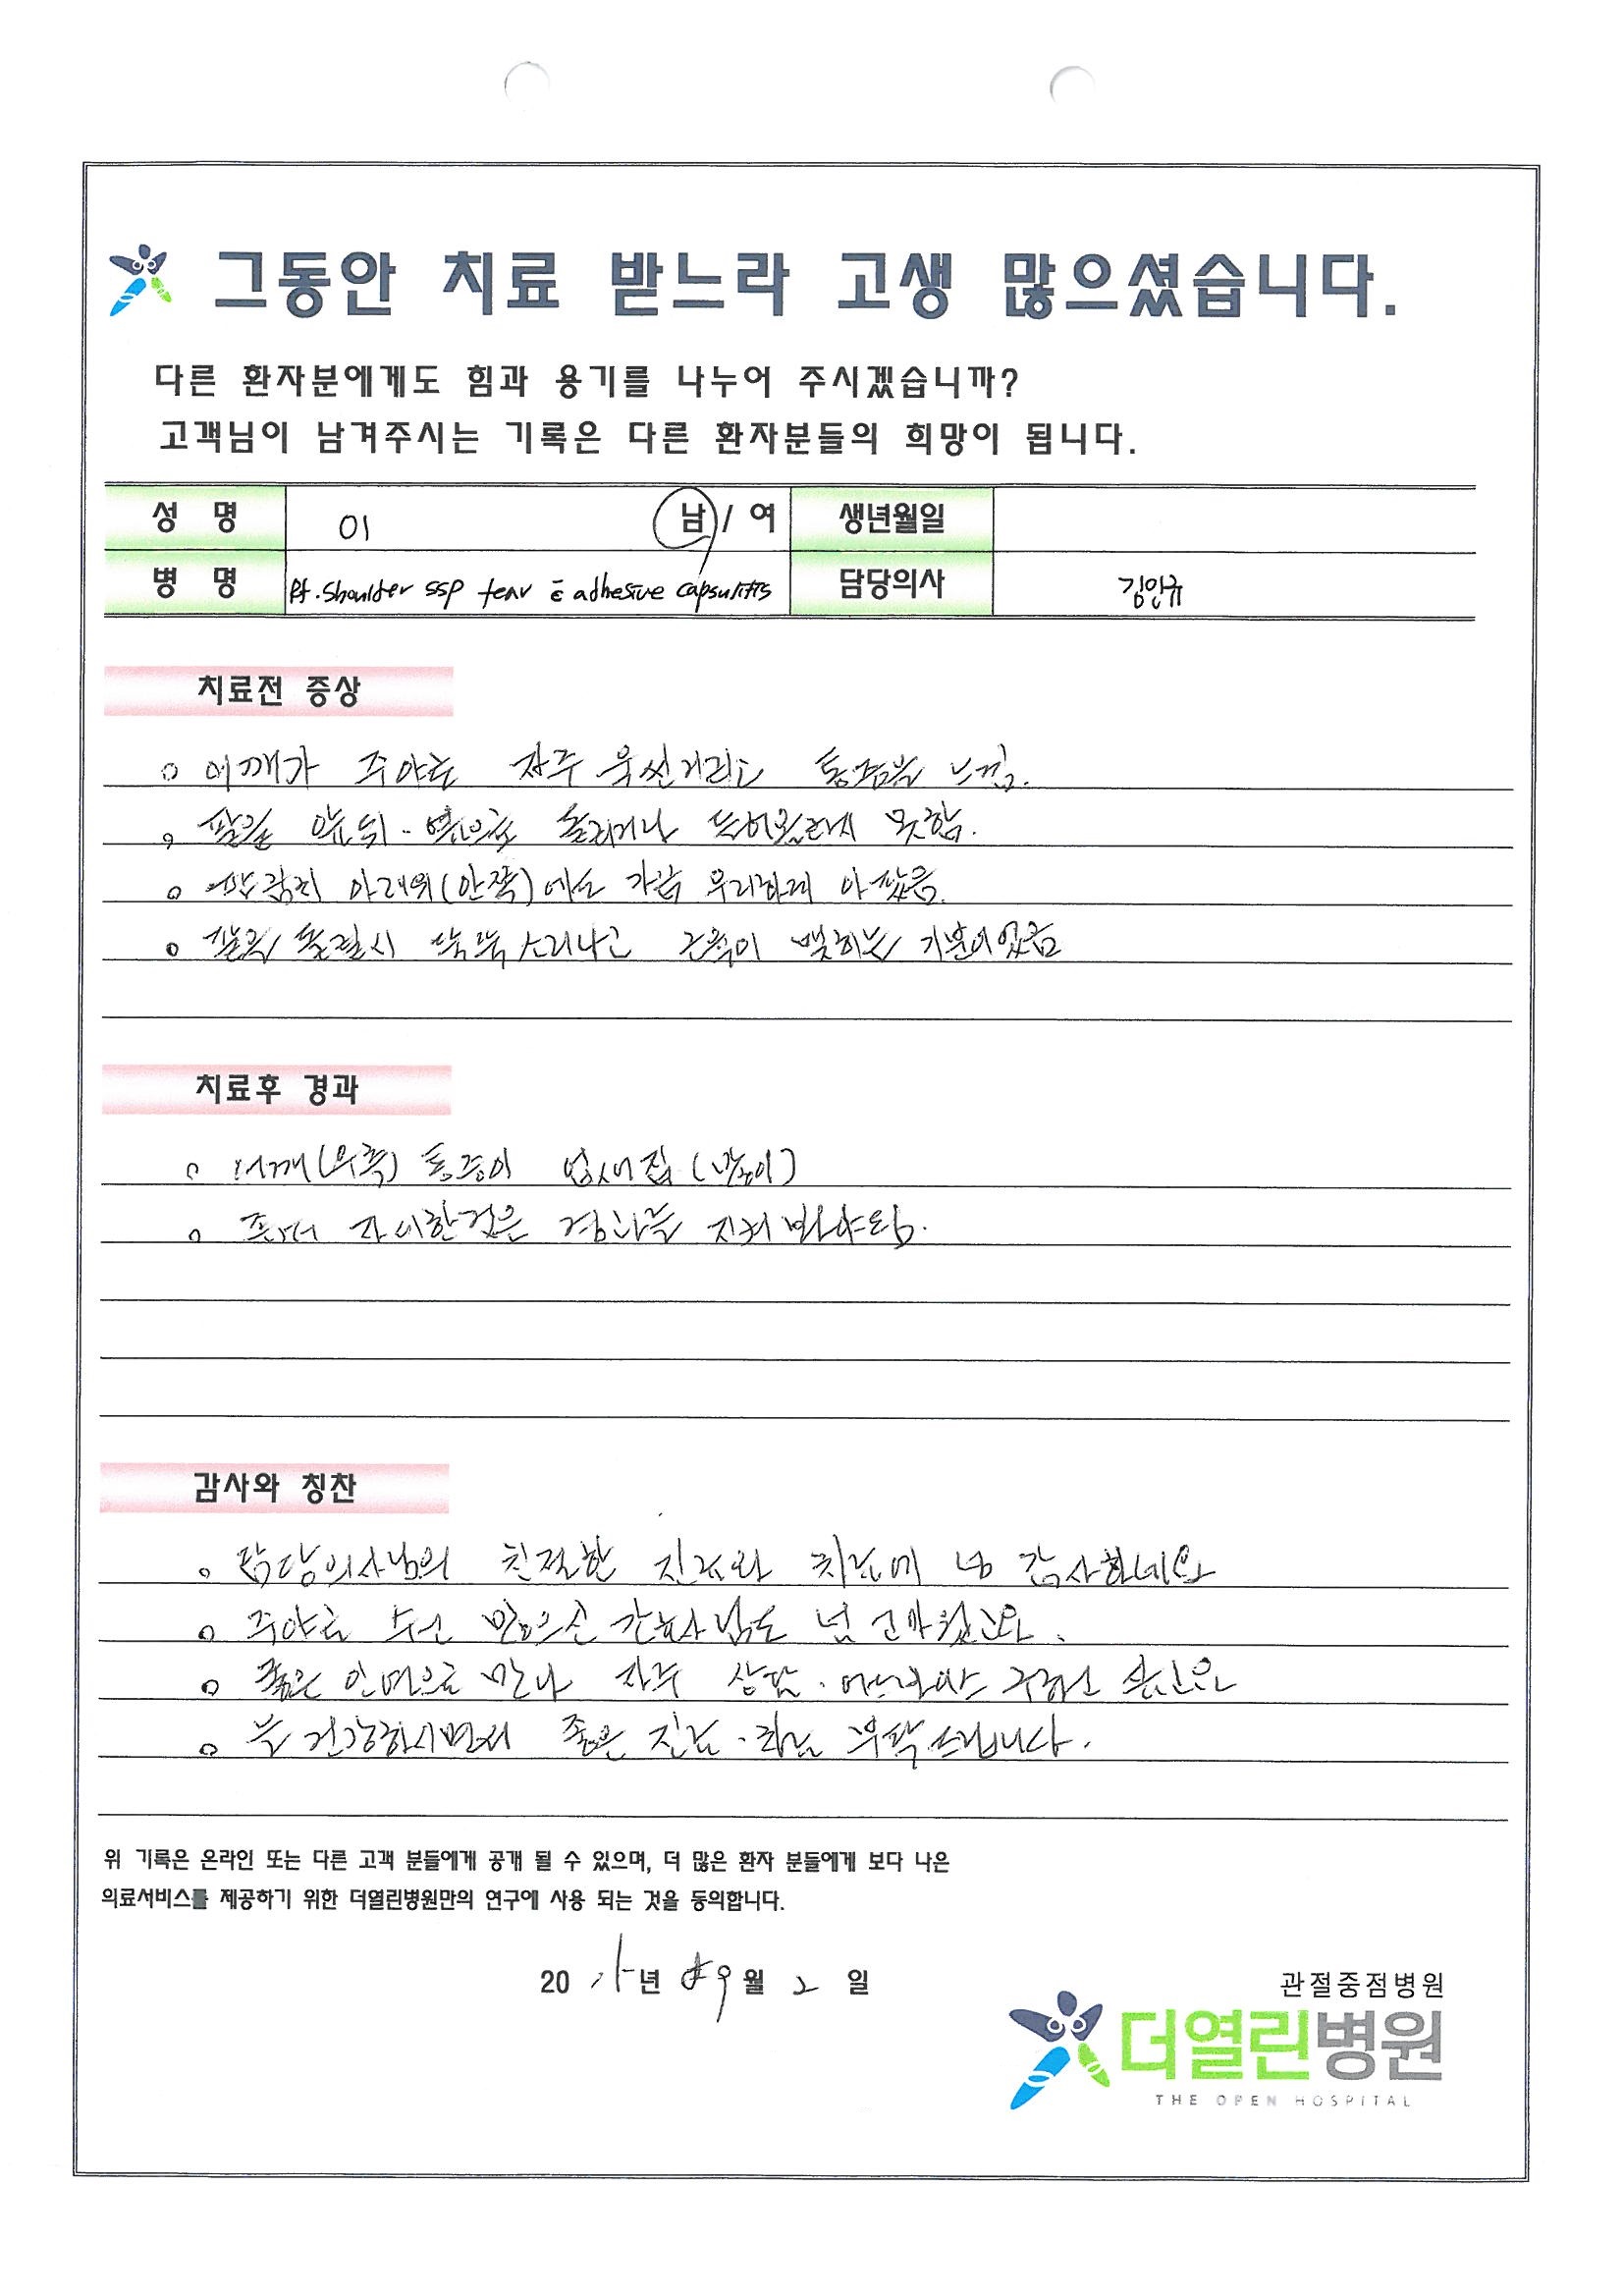 그동안 치료 받느라 고생 많으셨습니다.
다른 환자분에게도 힘과 용기를 나누어 주시겠습니까?
고객님이 남겨주시는 기록은 다른 환자분들의 희망이 됩니다.
성 명 이 남 / 여 생년월일
병 명 Rt. shoulder SSP tear c̄ adhesive capsulitis 담당의사 김인규
치료전 증상
어깨가 주야로 자주 욱씬거리고 통증을 느낌.
팔을 앞뒤·옆으로 돌리거나 들어올리지 못함.
아래위(안쪽)에도 가끔 우리하게 아팠음.
팔꿈 돌릴시 뚝뚝 소리나고 근육이 기분이 있음
치료후 경과
어깨(우측) 통증이 없어짐(많이)
좀더 자세한것은 경과를 지켜봐야됨.
감사와 칭찬
담당의사님의 친절한 진료와 치료에 넘 감사하네요
주야로 수고 많으신 간호사님도 넘 고마웠고요.
좋은 인연으로 만나 자주 상담· 싶고요
늘 건강하시면서 좋은 진료· 부탁드립니다.
위 기록은 온라인 또는 다른 고객 분들에게 공개 될 수 있으며, 더 많은 환자 분들에게 보다 나은
의료서비스를 제공하기 위한 더열린병원만의 연구에 사용 되는 것을 동의합니다.
20 년 9월 2 일
관절중점병원
더열린병원
THE OPEN HOSPITAL